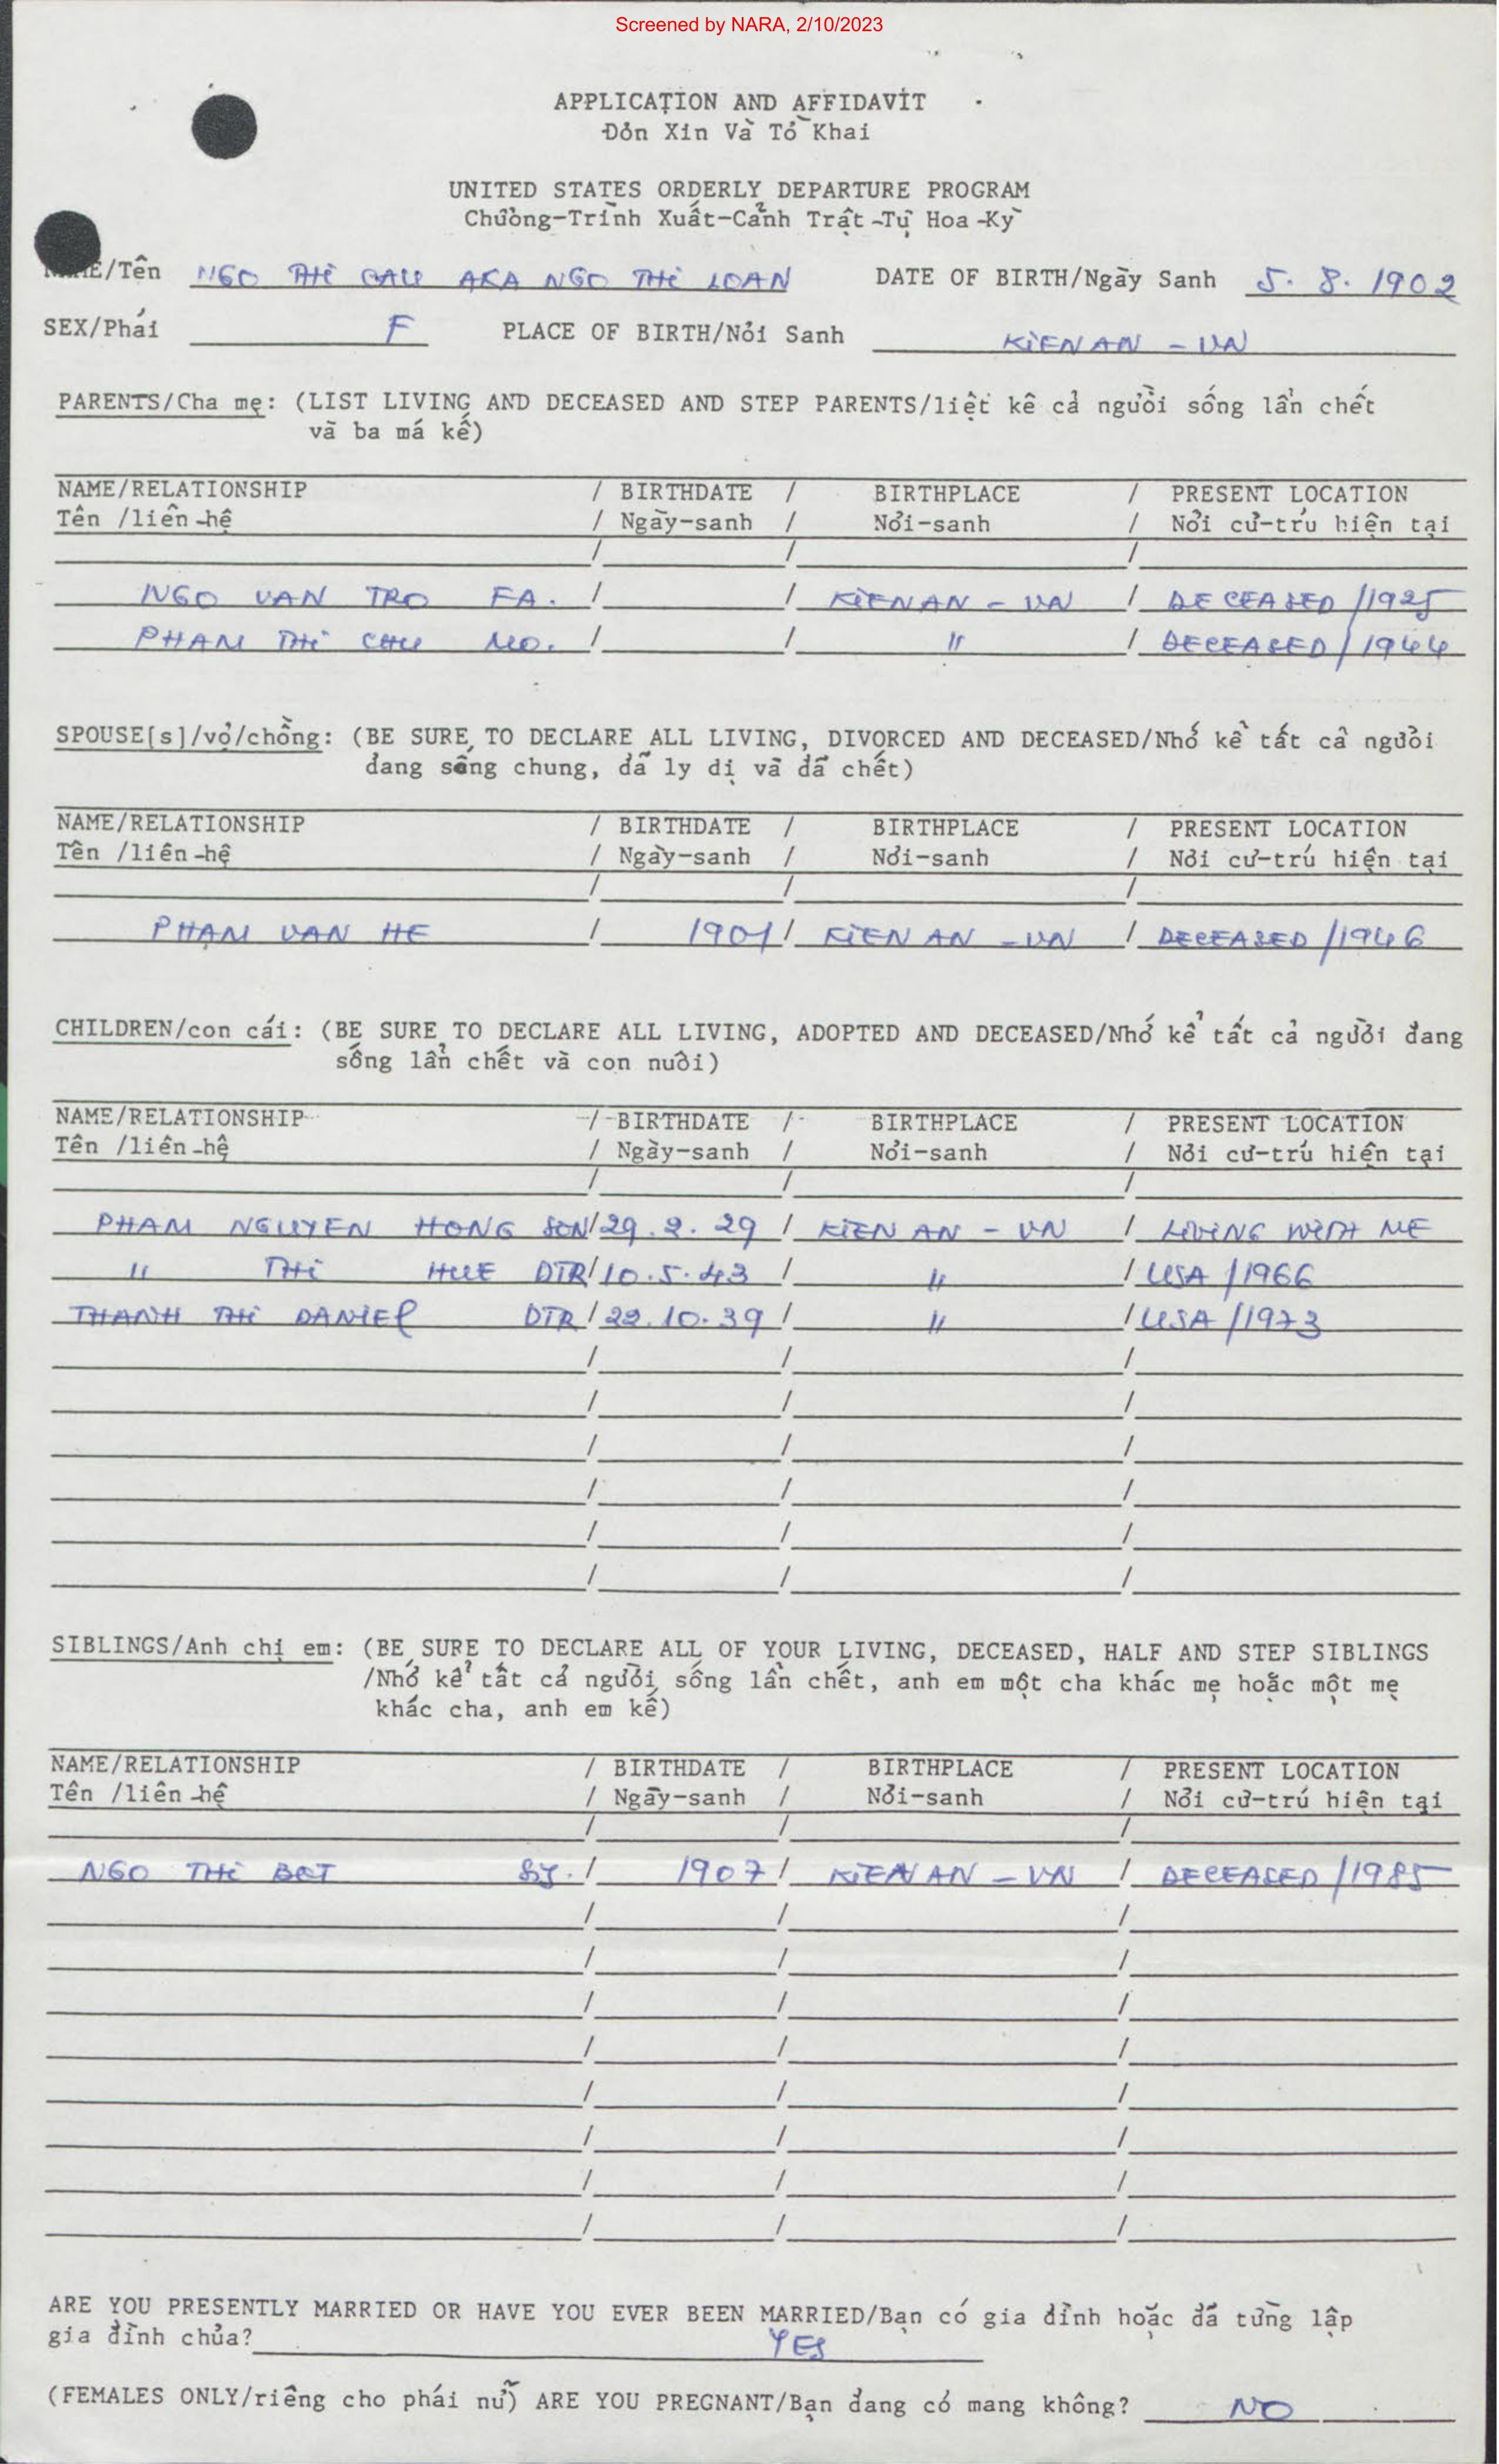 Screened by NARA, 2/10/2023
APPLICATION AND AFFIDAVIT
Đơn Xin Và Tờ Khai
UNITED STATES ORDERLY DEPARTURE PROGRAM
Chường-Trình Xuất-Cảnh Trật-Tự Hoa-Kỳ
NAME/Tên NGO THI CAU AKA NGO THI LOAN DATE OF BIRTH/Ngày Sanh 5. 8. 1902
SEX/Phái F PLACE OF BIRTH/Nơi Sanh KIEN AN - VN
PARENTS/Cha mẹ: (LIST LIVING AND DECEASED AND STEP PARENTS/liệt kê cả người sống lẫn chết
và ba má kế)
NAME/RELATIONSHIP / BIRTHDATE / BIRTHPLACE / PRESENT LOCATION
Tên /liên-hệ / Ngày-sanh / Nơi-sanh / Nơi cư-trú hiện tại
/ / /
NGO VAN TRO FA. / / KIEN AN - VN / DECEASED /1925
PHAM THI CHU MO. / / " / DECEASED / 1944
SPOUSE[s]/vợ/chồng: (BE SURE TO DECLARE ALL LIVING, DIVORCED AND DECEASED/Nhớ kể tất cả người
đang sống chung, đã ly dị và đã chết)
NAME/RELATIONSHIP / BIRTHDATE / BIRTHPLACE / PRESENT LOCATION
Tên /liên-hệ / Ngày-sanh / Nơi-sanh / Nơi cư-trú hiện tại
/ / /
PHAM VAN HE / 1901 / KIEN AN - VN / DECEASED /1946
CHILDREN/con cái: (BE SURE TO DECLARE ALL LIVING, ADOPTED AND DECEASED/Nhớ kể tất cả người đang
sống lẫn chết và con nuôi)
NAME/RELATIONSHIP / BIRTHDATE / BIRTHPLACE / PRESENT LOCATION
Tên /liên-hệ / Ngày-sanh / Nơi-sanh / Nơi cư-trú hiện tại
/ / /
PHAM NGUYEN HONG SON / 29.2.29 / KIEN AN - VN / LIVING WITH ME
" THI HUE DTR / 10.5.43 / " / USA /1966
THANH THI DANIEL DTR / 22.10.39 / " / USA /1973
/ / /
/ / /
/ / /
/ / /
/ / /
/ / /
SIBLINGS/Anh chị em: (BE SURE TO DECLARE ALL OF YOUR LIVING, DECEASED, HALF AND STEP SIBLINGS
/Nhớ kể tất cả người sống lẫn chết, anh em một cha khác mẹ hoặc một mẹ
khác cha, anh em kế)
NAME/RELATIONSHIP / BIRTHDATE / BIRTHPLACE / PRESENT LOCATION
Tên /liên-hệ / Ngày-sanh / Nơi-sanh / Nơi cư-trú hiện tại
/ / /
NGO THI BET / 1907 / KIEN AN - VN / DECEASED /1985
/ / /
/ / /
/ / /
/ / /
/ / /
/ / /
/ / /
/ / /
ARE YOU PRESENTLY MARRIED OR HAVE YOU EVER BEEN MARRIED/Bạn có gia đình hoặc đã từng lập
gia đình chưa? YES
(FEMALES ONLY/riêng cho phái nữ) ARE YOU PREGNANT/Bạn đang có mang không? NO